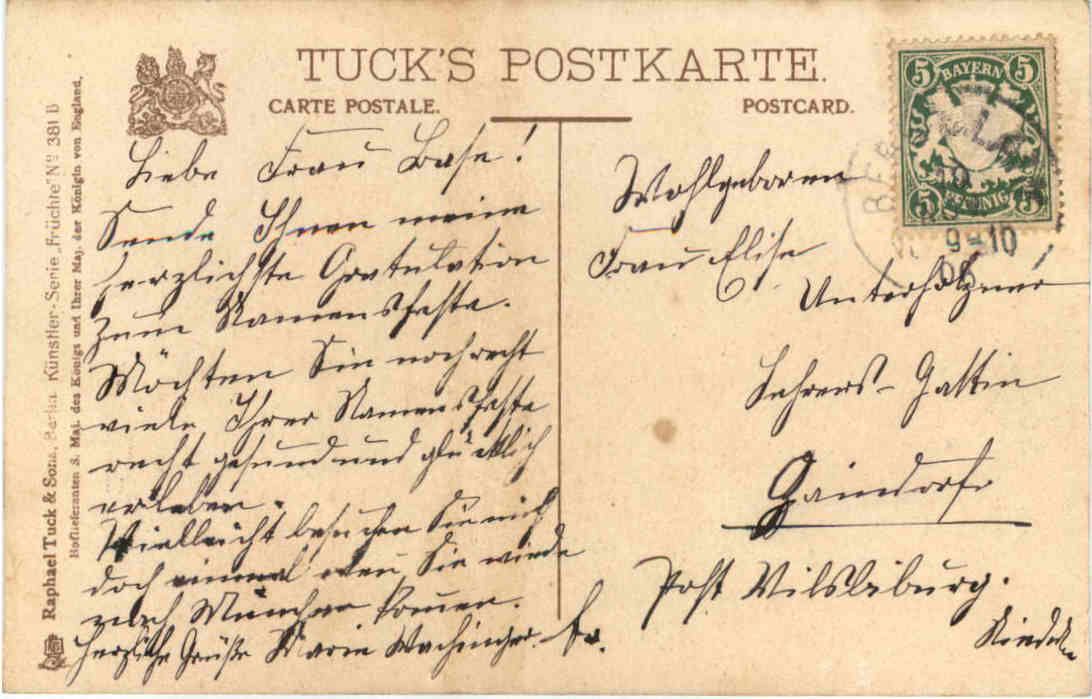 TUCK'S POSTKARTE.
CARTE POSTALE.
POSTCARD.
Raphael Tuck & Sons, Berlin. Künstler-Serie „Früchte" No 381 B
Hoflieferanten S. Maj. des Königs und Ihrer Maj. der Königin von England.
Liebe Frau Base!
Sende Ihnen meine
herzlichste Gratulation
zum Namensfeste.
Möchten Sie noch recht
viele Ihrer Namensfeste
recht gesund und glücklich
erleben.
Vielleicht besuchen Sie mich
doch einmal wenn Sie wieder
nach München kommen.
Herzliche Grüße Marie Wachinger
Wohlgeboren
Frau Elise
Unterholzner
Lehrers-Gattin
Gaindorf
Post Vilsbiburg.
5 BAYERN 5
5 PFENNIG 5
9-10
06